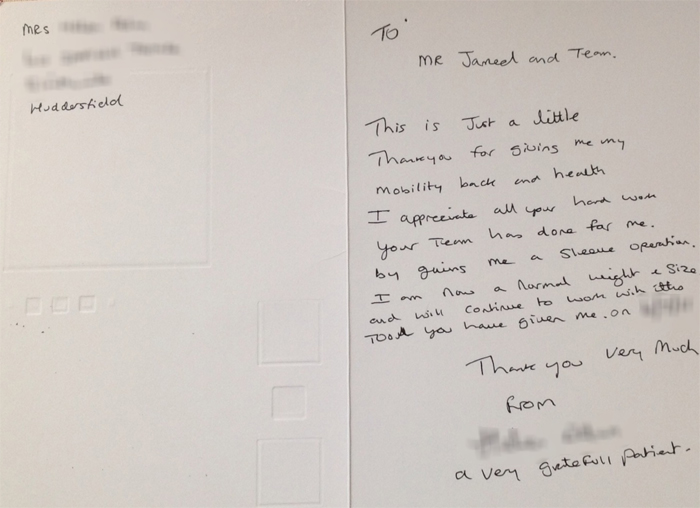 Mrs
Huddersfield
To
MR Jameel and Team.
This is Just a little
Thankyou for giving me my
mobility back and health
I appreciate all your hard work
your Team has done for me.
by giving me a Sleeve operation.
I am now a Normal weight & Size
and will continue to work with
Tool you have given me. on
Thank you very Much
from
a very gratefull patient.